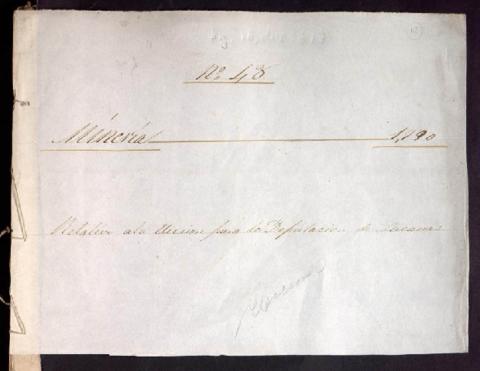 Nº 48
Minería 1,190
Relativo a la elección para la Diputación de